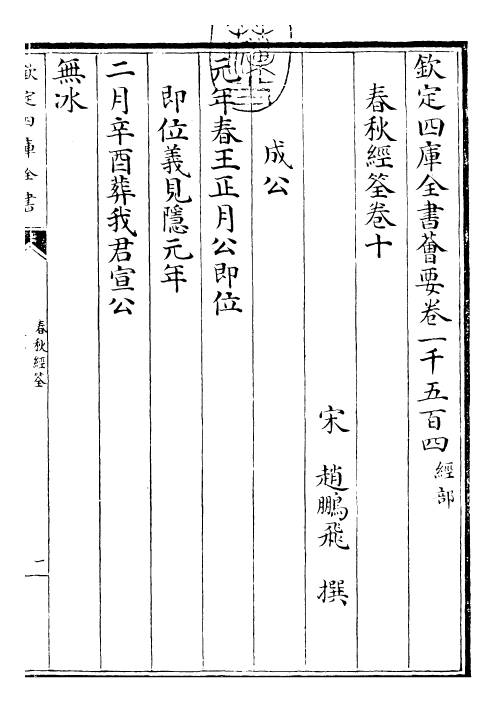 欽定四庫全書薈要卷一千五百四經部
春秋經筌卷十
宋 趙鵬飛 撰
成公
元年春王正月公即位
即位義見隱元年
二月辛酉葬我君宣公
無冰
欽定四庫全書
春秋經筌
一